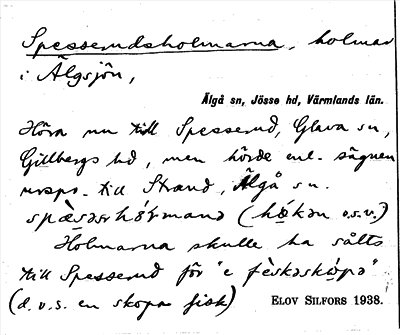 Spesserudsholmarna, holmar
i Älgsjön,
Älgå sn, Jösse hd, Värmlands län.
Höra nu till Spesserud, Glava sn,
Gillbergs hd, men hörde enl. sägnen
urspr. till Strand, Älgå sn.
(o.s.v.)
Holmarna skulle ha sålts
till Spesserud för "e fèskəskópə"
(d.v.s. en skopa fisk) ELOV SILFORS 1938.